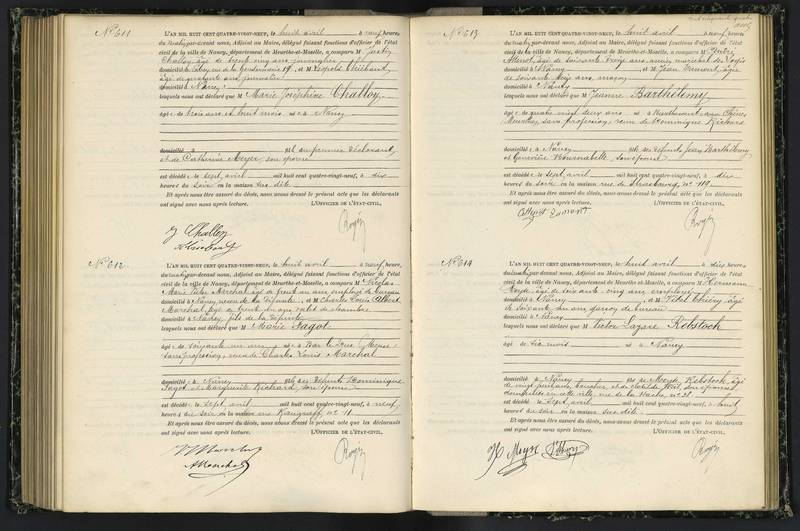 N° 611
L'AN MIL HUIT CENT QUATRE-VINGT-NEUF, le huit avril à neuf heures
du matin par-devant nous, Adjoint au Maire, délégué faisant fonctions d'officier de l'état
civil de la ville de Nancy, département de Meurthe-et-Moselle, a comparu M Justin
Challoy, âgé de trente cinq ans, journalier
domicilié à
âgé de quarante ans, journalier
domicilié à Nancy
lesquels nous ont déclaré que M Marie Joséphine Challoy
âgée de trois ans et huit mois née à Nancy
domicilié à est au premier déclarant
et de Catherine Meyer son épouse
est décédée le sept avril mil huit cent quatre-vingt-neuf, à dix
heures du soir en la maison sus dite
Et après nous être assuré du décès, nous avons dressé le présent acte que les déclarants
ont signé avec nous après lecture. L'OFFICIER DE L'ÉTAT-CIVIL,
J Challoy
N° 612
L'AN MIL HUIT CENT QUATRE-VINGT-NEUF, le huit avril à neuf heures
du matin par-devant nous, Adjoint au Maire, délégué faisant fonctions d'officier de l'état
civil de la ville de Nancy, département de Meurthe-et-Moselle, a comparu M Nicolas
Marie Victor Marchal âgé de trente un ans employé de bureau
domicilié à Nancy et M Charles Louis Albert
Marchal, âgé de trente
domicilié à Nancy, fils de la défunte
lesquels nous ont déclaré que M Marie Sagot
âgée de soixante un ans née à Bar le Duc (Meuse)
sans profession, veuve de Charles Louis Marchal
domiciliée à Nancy est des défunts Dominique
Sagot et Marguerite Richard, son épouse
est décédée le sept avril mil huit cent quatre-vingt-neuf, à neuf
heures du soir en la maison n° 11
Et après nous être assuré du décès, nous avons dressé le présent acte que les déclarants
ont signé avec nous après lecture. L'OFFICIER DE L'ÉTAT-CIVIL,
V Marchal
A Marchal
N° 613
L'AN MIL HUIT CENT QUATRE-VINGT-NEUF, le huit avril à neuf heures
du matin par-devant nous, Adjoint au Maire, délégué faisant fonctions d'officier de l'état
civil de la ville de Nancy, département de Meurthe-et-Moselle, a comparu M
âgé de soixante treize ans, ancien maréchal des logis
domicilié à Nancy et M Jean
de soixante trois ans, maçon
domicilié à Nancy
lesquels nous ont déclaré que M Jeanne Barthélemy
âgée de quatre vingt deux ans née à
Meurthe, sans profession, veuve de Dominique Richard
domiciliée à Nancy est des défunts Jean Barthélemy
et Geneviève son épouse
est décédée le sept avril mil huit cent quatre-vingt-neuf, à dix
heures du soir en la maison rue de Strasbourg, n° 119
Et après nous être assuré du décès, nous avons dressé le présent acte que les déclarants
ont signé avec nous après lecture. L'OFFICIER DE L'ÉTAT-CIVIL,
N° 614
L'AN MIL HUIT CENT QUATRE-VINGT-NEUF, le huit avril à dix heures
du matin par-devant nous, Adjoint au Maire, délégué faisant fonctions d'officier de l'état
civil de la ville de Nancy, département de Meurthe-et-Moselle, a comparu M Hermann
âgé de soixante cinq ans, employé
domicilié à Nancy et M Vital Thiéry âgé
de soixante un ans, garçon de bureau
domicilié à Nancy
lesquels nous ont déclaré que M Victor Lazare Rebstock
âgé de six mois né à Nancy
domicilié à Nancy est de Rebstock, âgé
de et de Clotilde son épouse,
domiciliés en cette ville, rue de la Hache, n° 28
est décédé le sept avril mil huit cent quatre-vingt-neuf, à huit
heures du soir en la maison sus dite
Et après nous être assuré du décès, nous avons dressé le présent acte que les déclarants
ont signé avec nous après lecture. L'OFFICIER DE L'ÉTAT-CIVIL,